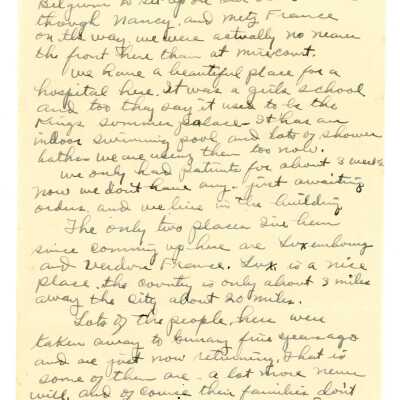 Belgium to set up
through Nancy, and Metz France
on the way, we were actually no nearer
the front here than at Mirecourt.
We have a beautiful place for a
hospital here. It was a girls school
and too they say it used to be the
Kings summer palace. It has an
indoor swimming pool and lots of shower
baths we are using them too now.
We only had patients for about 3 weeks
now we don't have any. just awaiting
orders, and we live in the building
The only two places I've been
since comming up here are Luxembourg
and Verdun France. Lux. is a nice
place. the country is only about 3 miles
away the City about 20 miles.
Lots of the people here were
taken away to Germany five years ago
and are just now returning, that is
some of them are. a lot more never
will, and of course their families don't